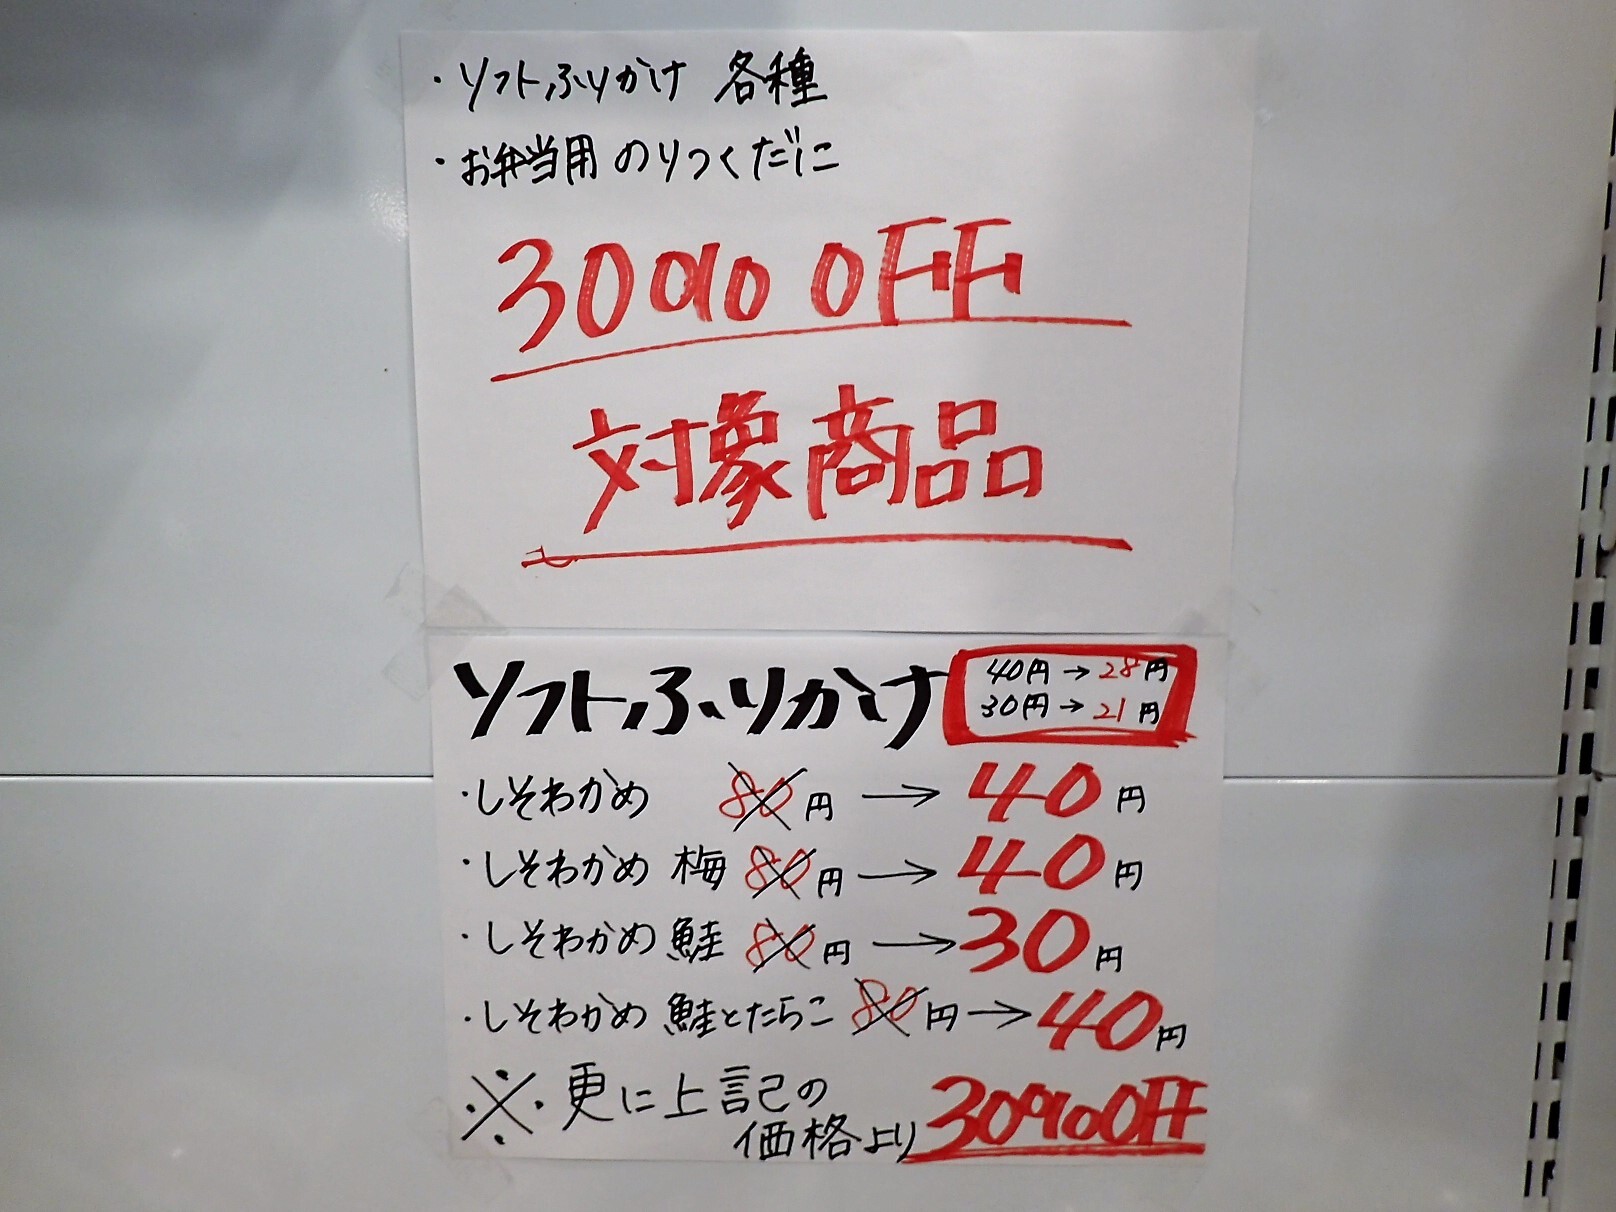 ・ソフトふりかけ 各種
・お弁当用 のりつくだに
30%OFF
対象商品
ソフトふりかけ
40円→28円
30円→21円
・しそわかめ 80円→40円
・しそわかめ 梅 80円→40円
・しそわかめ 鮭 80円→30円
・しそわかめ 鮭とたらこ 80円→40円
※更に上記の
価格より30%OFF